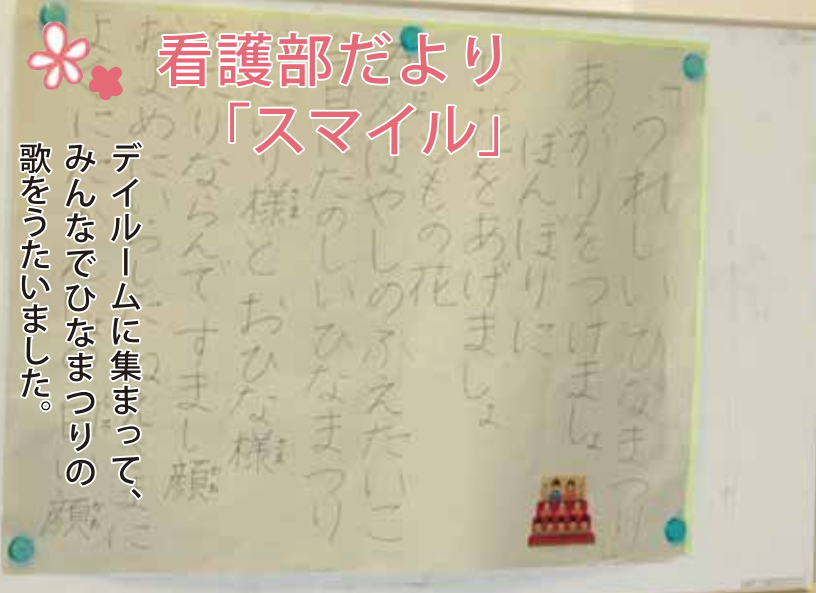 看護部だより
「スマイル」
デイルームに集まって、
みんなでひなまつりの
歌をうたいました。
「うれしいひなまつり
あかりをつけましょ
ぼんぼりに
お花をあげましょ
もの花
ばやしのふえたいこ
日はたのしいひなまつり
り様と おひな様
りならんですまし顔
およめにいらし
よ に 顔